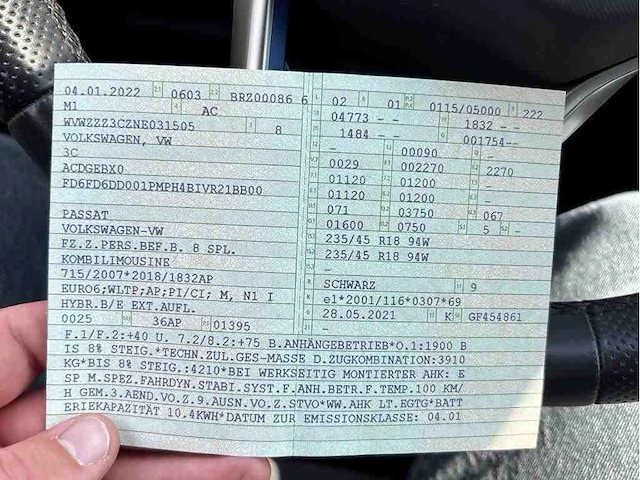 04.01.2022 0603 BRZ00086 6
M1 AC
WVWZZZ3CZNE031505 8
VOLKSWAGEN, VW
3C
ACDGEBX0
FD6FD6DD001PMPH4BIVR21BB00
PASSAT
VOLKSWAGEN-VW
FZ.Z.PERS.BEF.B. 8 SPL.
KOMBILIMOUSINE
715/2007*2018/1832AP
EURO6;WLTP;AP;PI/CI; M, N1 I
HYBR.B/E EXT.AUFL.
0025 36AP 01395
02 01 0115/05000 222
04773 - - 1832 - -
1484 - - 001754--
- 00090 -
0029 002270 2270
01120 01200 -
01120 01200 -
071 03750 067
01600 0750 5 -
235/45 R18 94W
235/45 R18 94W
-
SCHWARZ 9
e1*2001/116*0307*69
28.05.2021 K GF454861
-
F.1/F.2:+40 U. 7.2/8.2:+75 B.ANHÄNGEBETRIEB*O.1:1900 B
IS 8% STEIG.*TECHN.ZUL.GES-MASSE D.ZUGKOMBINATION:3910
KG*BIS 8% STEIG.:4210*BEI WERKSEITIG MONTIERTER AHK: E
SP M.SPEZ.FAHRDYN.STABI.SYST.F.ANH.BETR.F.TEMP.100 KM/
H GEM.3.AEND.VO.Z.9.AUSN.VO.Z.STVO*WW.AHK LT.EGTG*BATT
ERIEKAPAZITÄT 10.4KWH*DATUM ZUR EMISSIONSKLASSE: 04.01